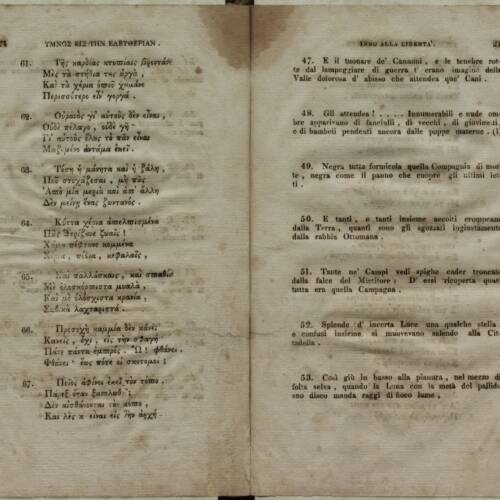 ΥΜΝΟΣ ΕΙΣ ΤΗΝ ΕΛΕΥΘΕΡΙΑΝ.
61. Τῆς καρδίας κτυπίαις βροντᾶνε
Μὲς τὰ στήθια τῆς ἀργὰ,
Καὶ τὰ χέρια ὁποῦ χουμᾶνε
Περισσότερο εἶν γοργά.
62. Οὐρανὸς γι' αὐτοὺς δὲν εἶναι,
Οὐδὲ πέλαγο, οὐδὲ γῆ
Γι' αὐτοὺς ὅλους τὸ πᾶν εἶναι
Μαζωμένο ἀντάμα ἐκεῖ.
63. Τόση ἡ μάνητα καὶ ἡ ζάλη,
Ποῦ στοχάζεσαι, μὴ πῶς
Ἀπὸ μία μεριὰ καὶ ἀπ' ἄλλη
Δὲν μείνῃ ἕνας ζωντανός.
64. Κύττα χέρια ἀπελπισμένα
Πῶς θερίζουνε ζωαῖς!
Χάμω πέφτουνε κομμένα
Χέρια, πόδια, κεφαλαῖς,
65. Καὶ παλλάσκαις, καὶ σπαθία
Μὲ ὁλοσκόρπιστα μυαλὰ,
Καὶ μὲ ὁλόσχιστα κρανία,
Σωθικὰ λαχταριστά.
66. Προσοχὴ καμμία δὲν κάνει
Κανεὶς, ὄχι, εἰς τὴν σφαγὴ
Πᾶνε πάντα ἐμπρός. Ὤ! φθάνει,
Φθάνει· ἕως πότε οἱ σκοτωμοί;
67. Ποῖος ἀφίνει ἐκεῖ τὸν τόπο,
Πάρεξ ὅταν ξαπλωθῇ;
Δὲν αἰσθάνονται τὸν κόπο,
Καὶ λὲς κ' εἶναι εἰς τὴν ἀρχή.
INNO ALLA LIBERTA'.
47. E il tuonare de' Cannoni, e le tenebre rot-
te dal lampeggiare di guerra t' erano imagini della
Valle dolorosa d' abisso che attendea que' Cani.
48. Gli attendea! ..... Innumerabili e nude om-
bre apparivano di fanciulli, di vecchi, di giovinetti,
e di bamboli pendenti ancora dalle poppe materne.
49. Negra tutta formicola quella Compagnia di mor-
te, negra come il panno che cuopre gli ultimi let-
ti.
50. E tanti, e tanti insieme accolti eromperano
dalla Terra, quanti sono gli sgozzati ingiustamente
dalla rabbia Ottomana.
51. Tante ne' Campi vedi spighe cader troncate
dalla falce del Mietitore; D' essi ricoperta quasi
tutta era quella Campagna.
52. Splende d' incerta Luce una qualche stella,
e confusi insieme si muovevano salendo alla Cit-
tadella.
53. Così giù in basso alla pianura, nel mezzo di
folta selva, quando la Luna con la metà del pallido
suo disco manda raggi di fioco lume,